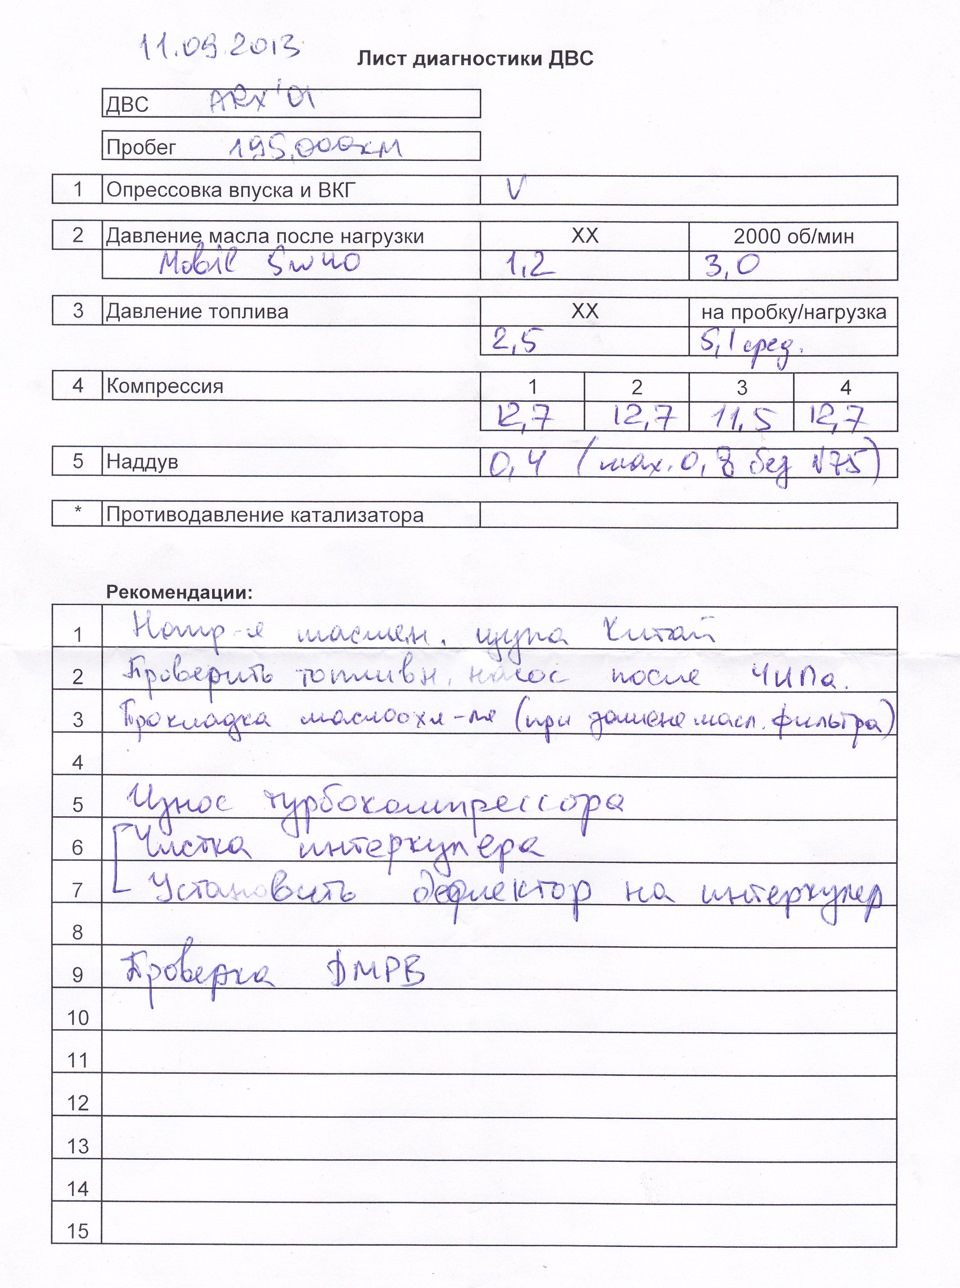 11.09.2013
Лист диагностики ДВС
ДВС ARX'01
Пробег 195.000км
1 Опрессовка впуска и ВКГ V
2 Давление масла после нагрузки ХХ 2000 об/мин
Mobil 5w40 1,2 3,0
3 Давление топлива ХХ на пробку/нагрузка
2,5 5,1 сред.
4 Компрессия 1 2 3 4
12,7 12,7 11,5 12,7
5 Наддув 0,4 (max. 0,8 без N75)
* Противодавление катализатора
Рекомендации:
1 Напр-я маслен. щупа Китай
2 Проверить топливн. насос после ЧИПа.
3 Прокладка маслоохл-ля (при замене масл. фильтра)
4
5 Износ турбокомпрессора
6 Чистка интеркулера
7 Установить дефлектор на интеркулер
8
9 Проверка ДМРВ
10
11
12
13
14
15